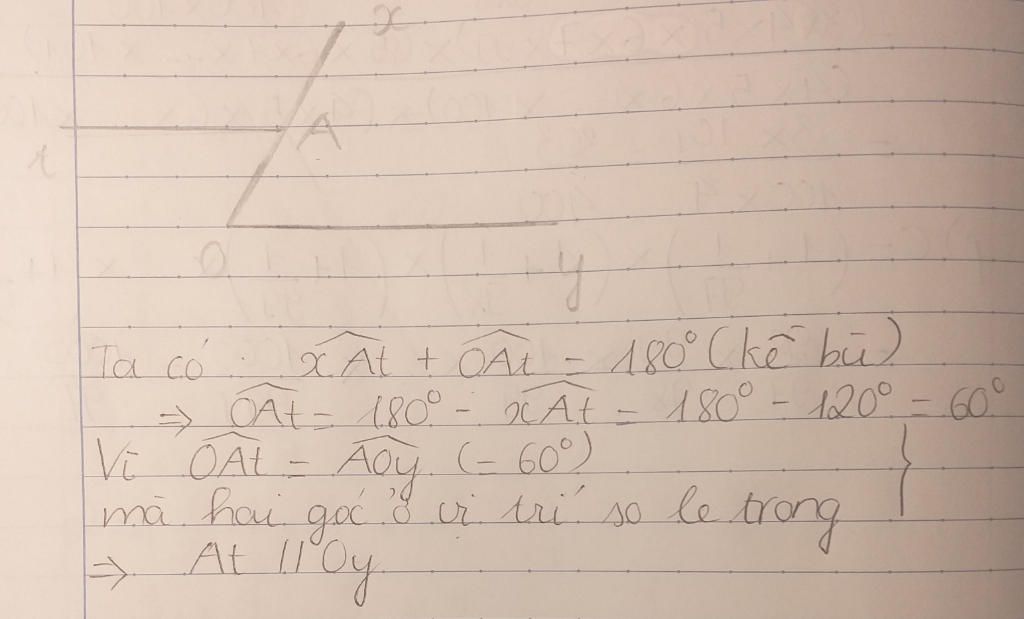 x
A
t
O
y
Ta có: xAt + OAt = 180° (kề bù)
⇒ OAt = 180° - xAt = 180° - 120° = 60°
Vì OAt = AOy (= 60°)
mà hai góc ở vị trí so le trong
⇒ At // Oy